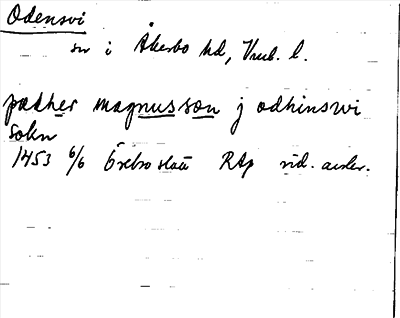 Odensvi
sn i Åkerbo hd, Vml. l.
pædher magnusson j odhinswi
sokn
1453 6/6 Örebro slott RAp vid. avskr.